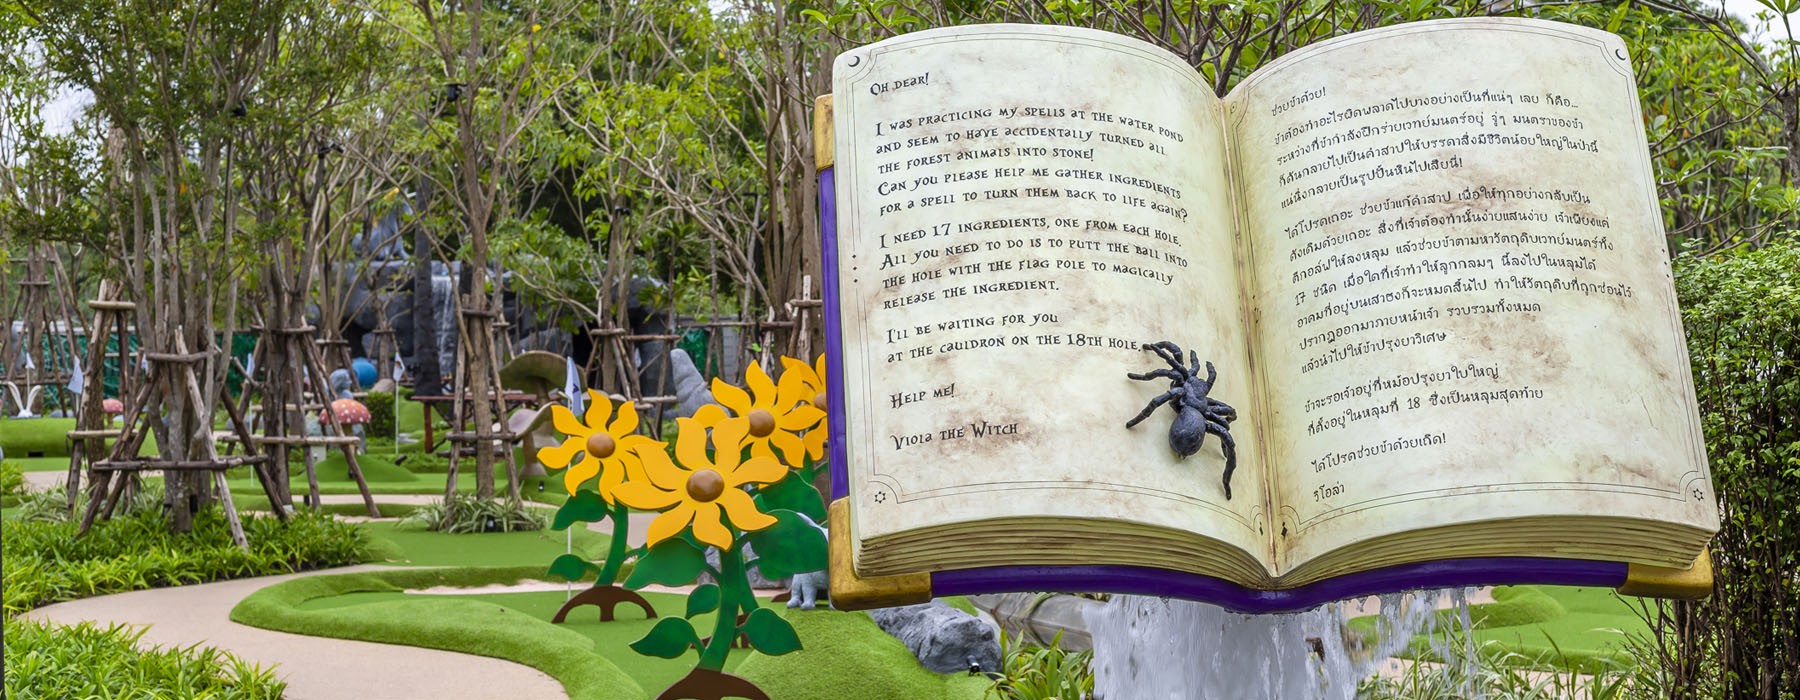 Oh dear!
I was practicing my spells at the water pond
and seem to have accidentally turned all
the forest animals into stone!
Can you please help me gather ingredients
for a spell to turn them back to life again?
I need 17 ingredients, one from each hole.
All you need to do is to putt the ball into
the hole with the flag pole to magically
release the ingredient.
I'll be waiting for you
at the cauldron on the 18th hole.
Help me!
Viola the Witch
ช่วยข้าด้วย!
ข้าต้องทำอะไรผิดพลาดไปบางอย่างเป็นที่แน่ๆ เลย ก็คือ...
ระหว่างที่ข้ากำลังฝึกร่ายเวทย์มนตร์อยู่ จู่ๆ มนตราของข้า
ก็ดันกลายไปเป็นคำสาปให้บรรดาสิ่งมีชีวิตน้อยใหญ่ในป่านี้
แน่นิ่งกลายเป็นรูปปั้นหินไปเสียนี่!
ได้โปรดเถอะ ช่วยข้าแก้คำสาป เพื่อให้ทุกอย่างกลับเป็น
ดังเดิมด้วยเถอะ สิ่งที่เจ้าต้องทำนั้นง่ายแสนง่าย เจ้าเพียงแค่
ตีกอล์ฟให้ลงหลุม แล้วช่วยข้าตามหาวัตถุดิบเวทย์มนตร์ทั้ง
17 ชนิด เมื่อใดที่เจ้าทำให้ลูกกลมๆ นี้ลงไปในหลุมได้
อาคมที่อยู่บนเสาธงก็จะหมดสิ้นไป ทำให้วัตถุดิบที่ถูกซ่อนไว้
ปรากฏออกมาภายหน้าเจ้า รวบรวมทั้งหมด
แล้วนำไปให้ข้าปรุงยาวิเศษ
ข้าจะรอเจ้าอยู่ที่หม้อปรุงยาใบใหญ่
ที่ตั้งอยู่ในหลุมที่ 18 ซึ่งเป็นหลุมสุดท้าย
ได้โปรดช่วยข้าด้วยเถิด!
วิโอล่า